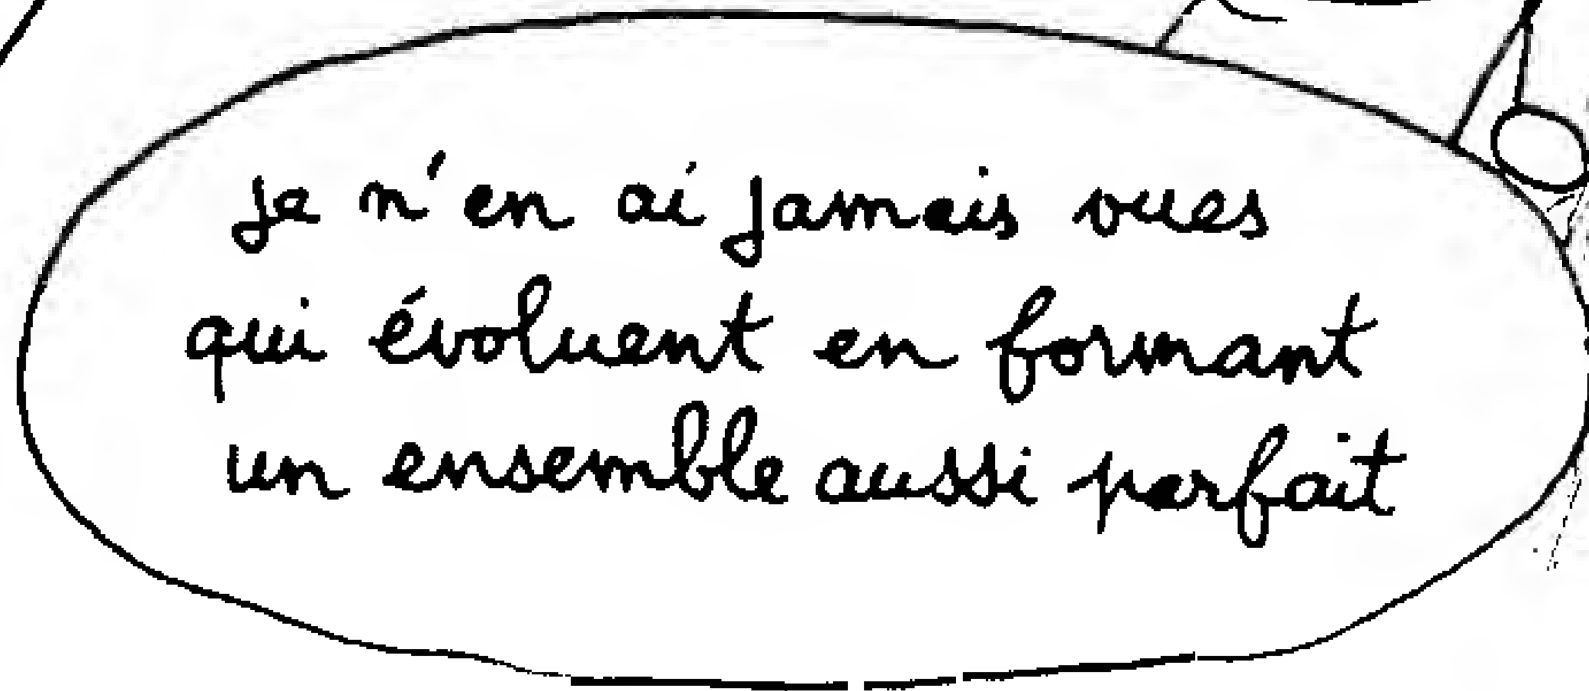 je n'en ai jamais vues
qui évoluent en formant
un ensemble aussi parfait